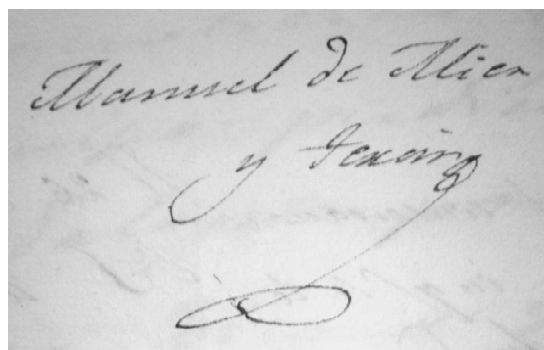 Manuel de Mier
y Terán